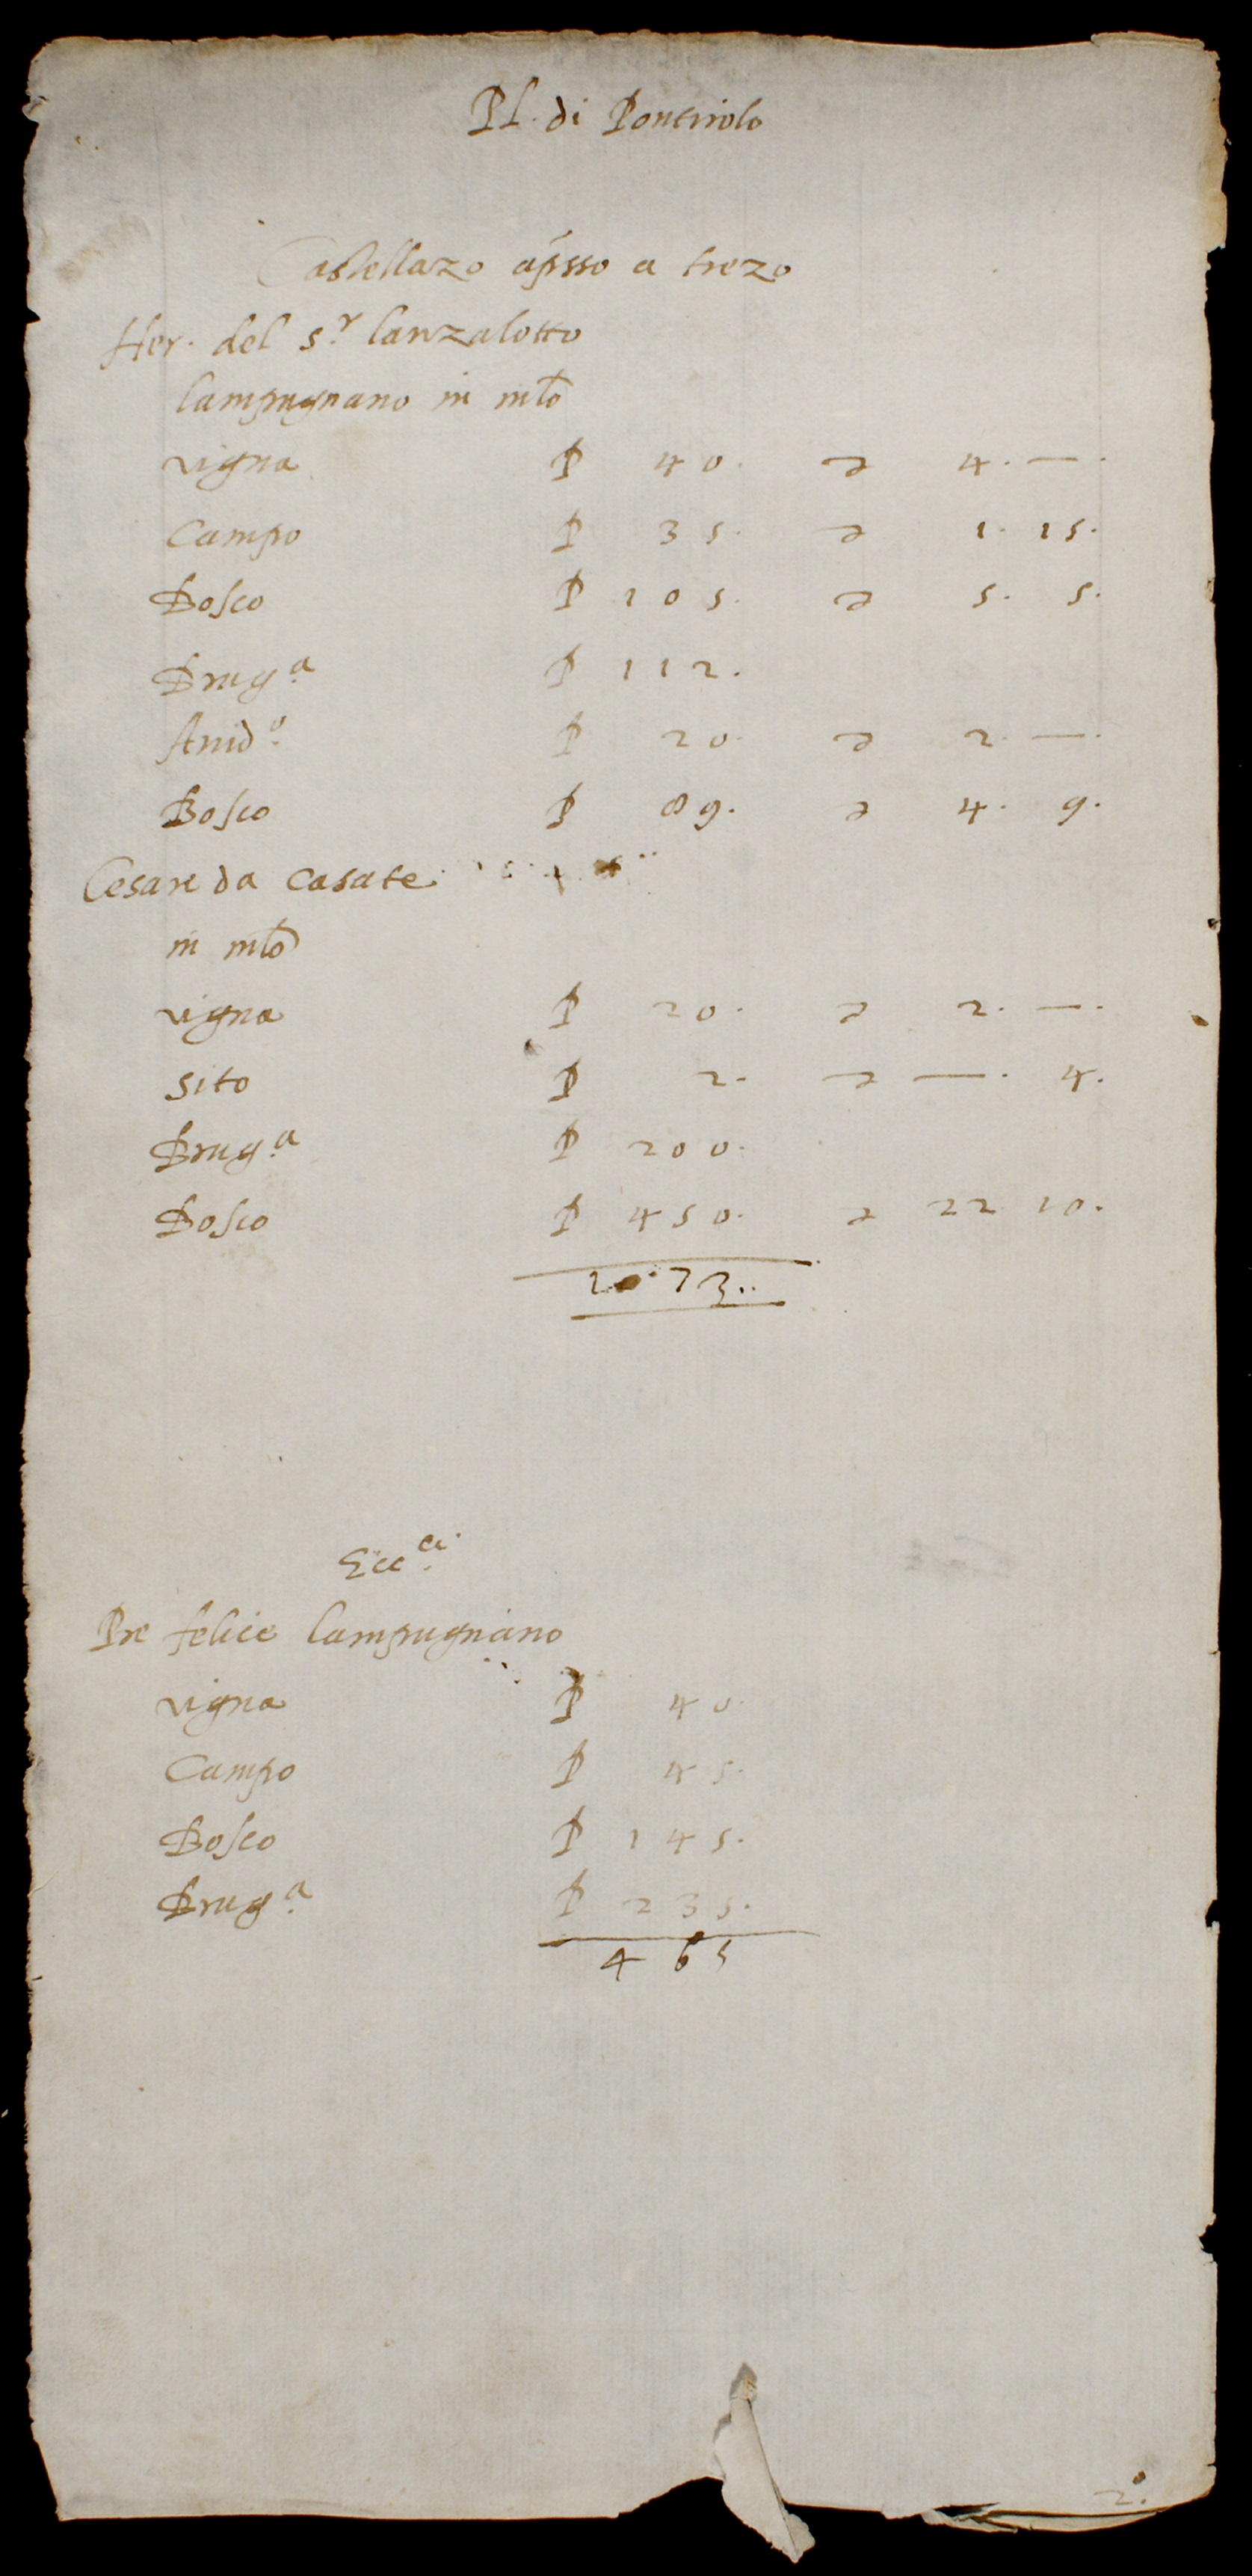 Pl. di Pontirolo
Castellazo apsso a trezo
Her. del s.r lanzalotto
lampugnano in mlo
vigna P 40. 4. —.
Campo P 35. 1. 15.
Bosco P 105. 5. 5.
Brug.a P 112.
Arid.o P 20. 2. —.
Bosco P 89. 4. 9.
Cesare da Casate
in mlo
vigna P 20. 2. —.
sito P 2. —. 4.
Brug.a P 200.
Bosco P 450. 22 10.
1073..
Ecc.ci
Pre felice lampugnano
vigna P 40.
Campo P 45.
Bosco P 145.
Brug.a P 235.
465
2.